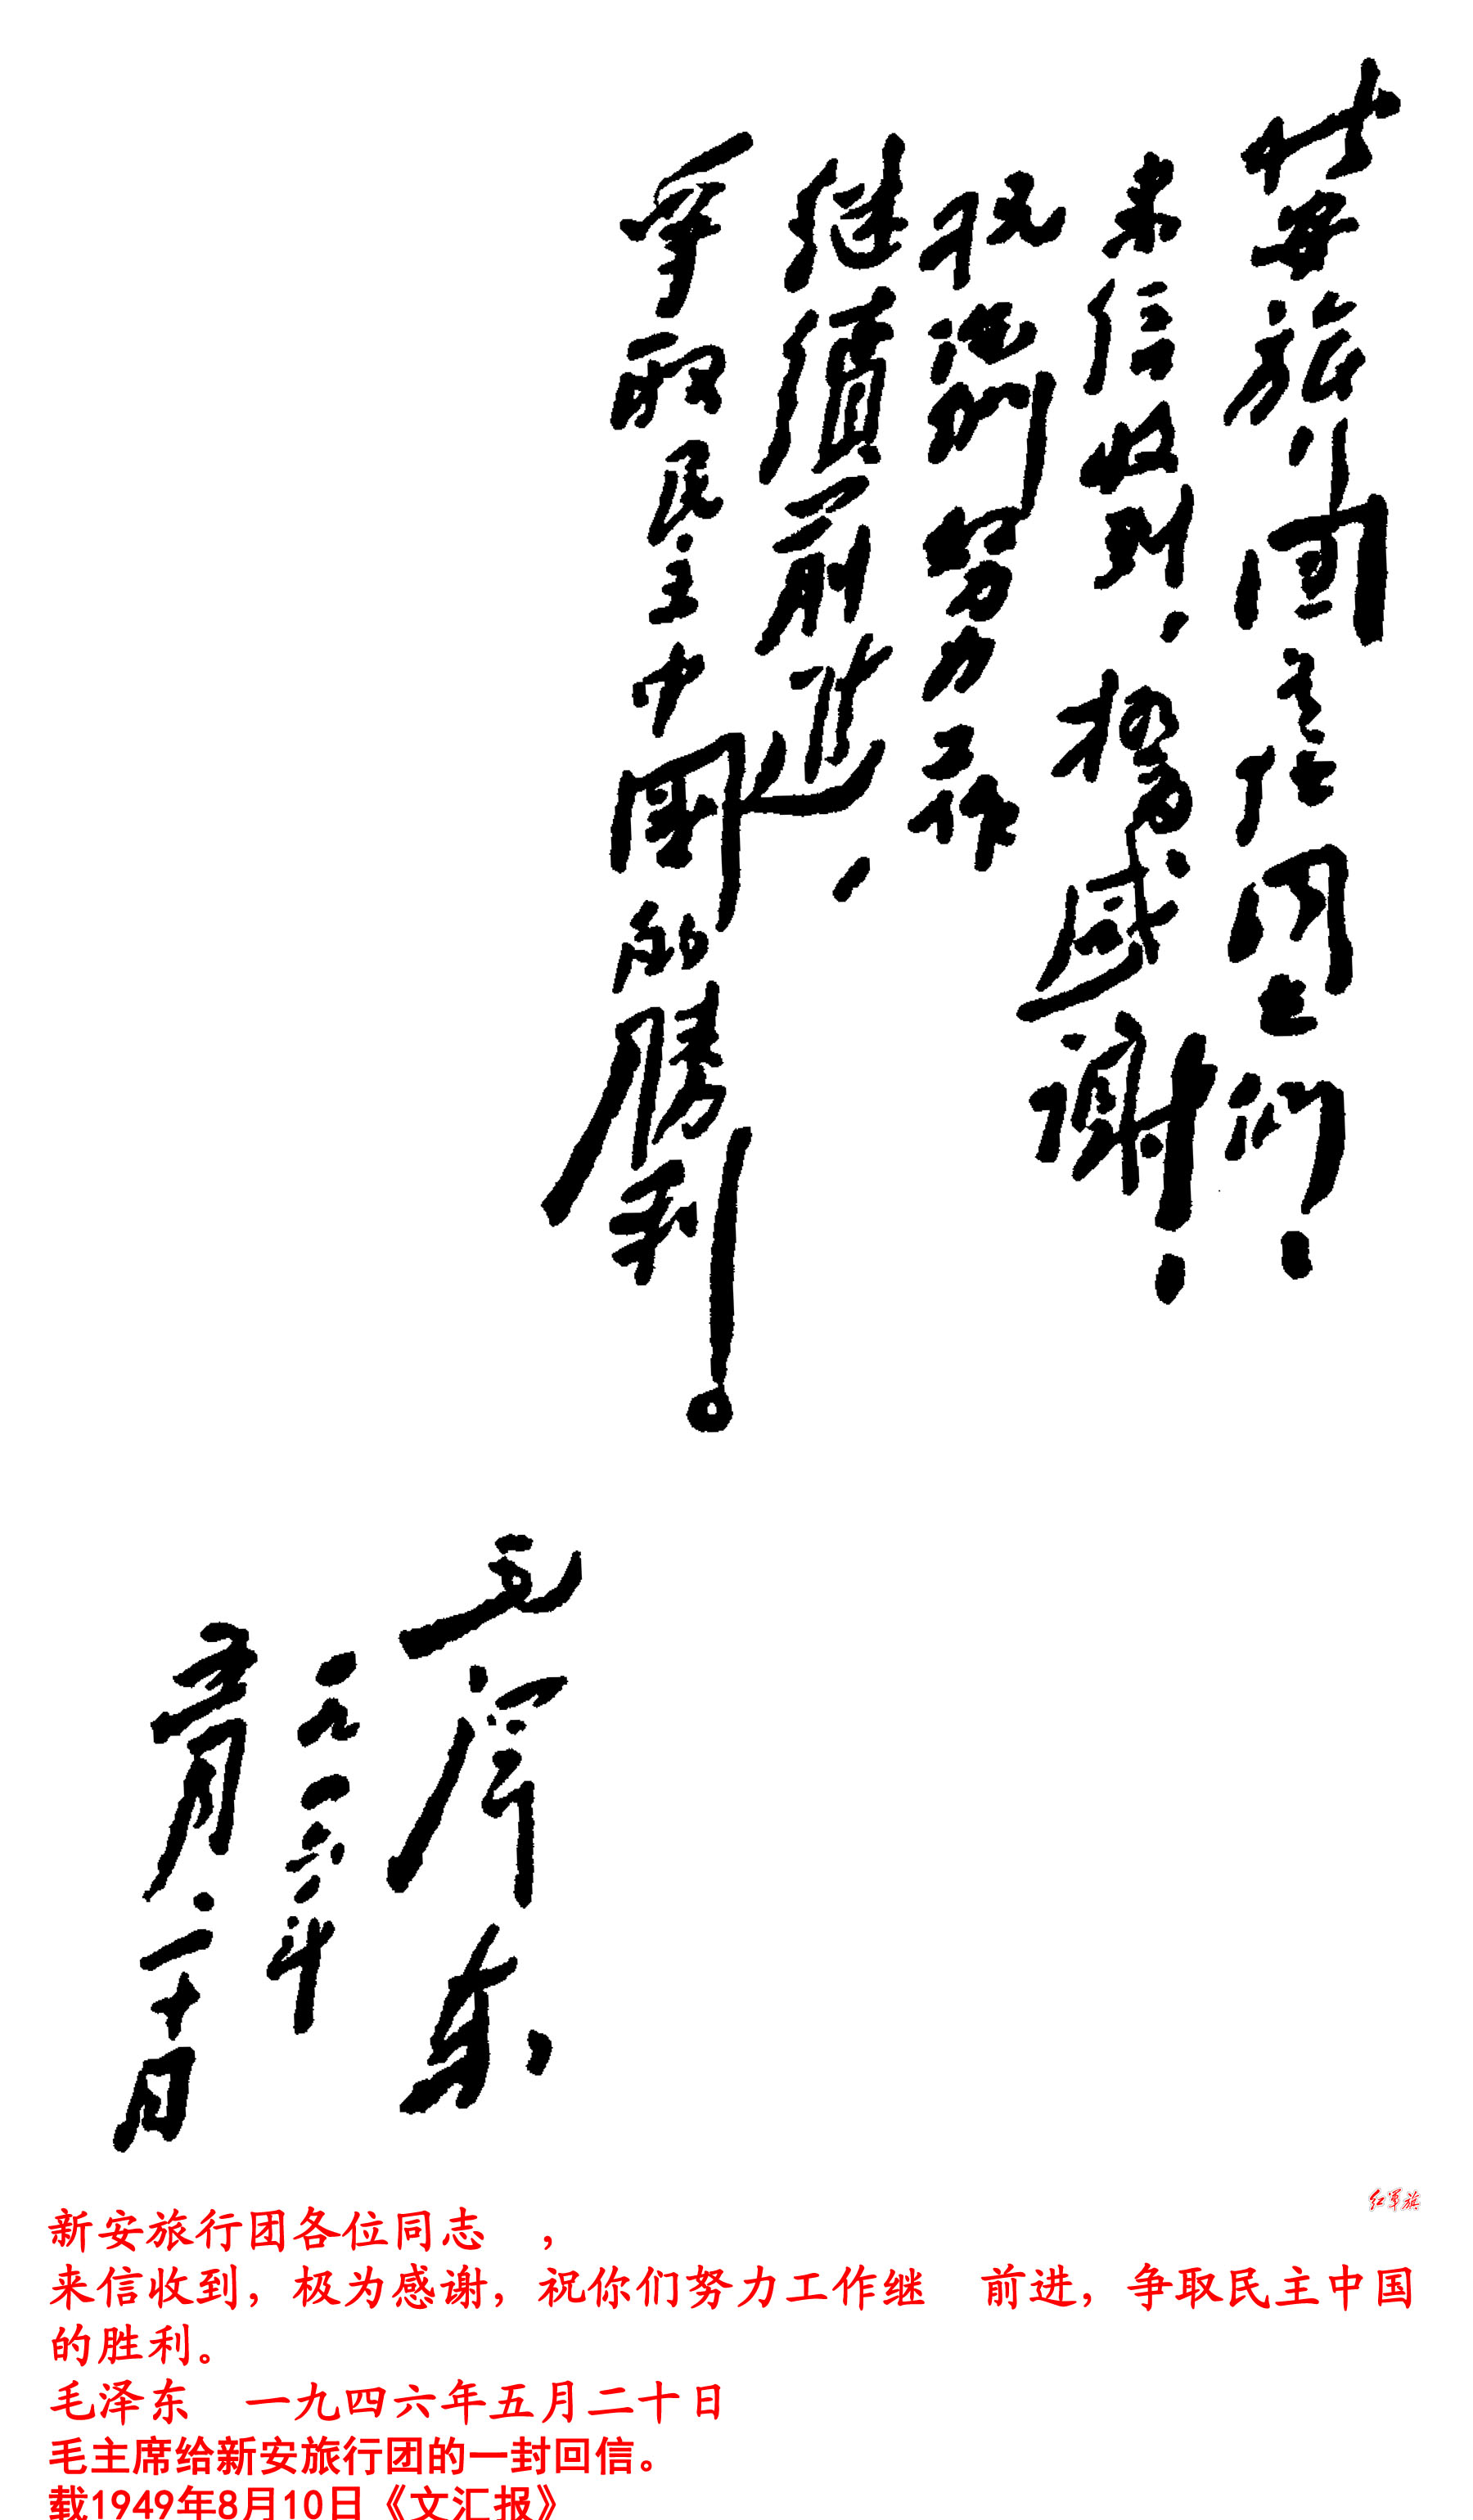 新安旅行團各位同志們：
来信收到，極為感謝，
祝你們努力工作
继續前進，
爭取民主中國的勝利。
毛泽东
一九四六年
五月二十日
红军旗
新安旅行团各位同志　，
来信收到，极为感谢，祝你们努力工作继　前进，争取民主中国
的胜利。
毛泽东　一九四六年五月二十日
毛主席给新安旅行团的一封回信。
载1949年8月10日《文汇报》